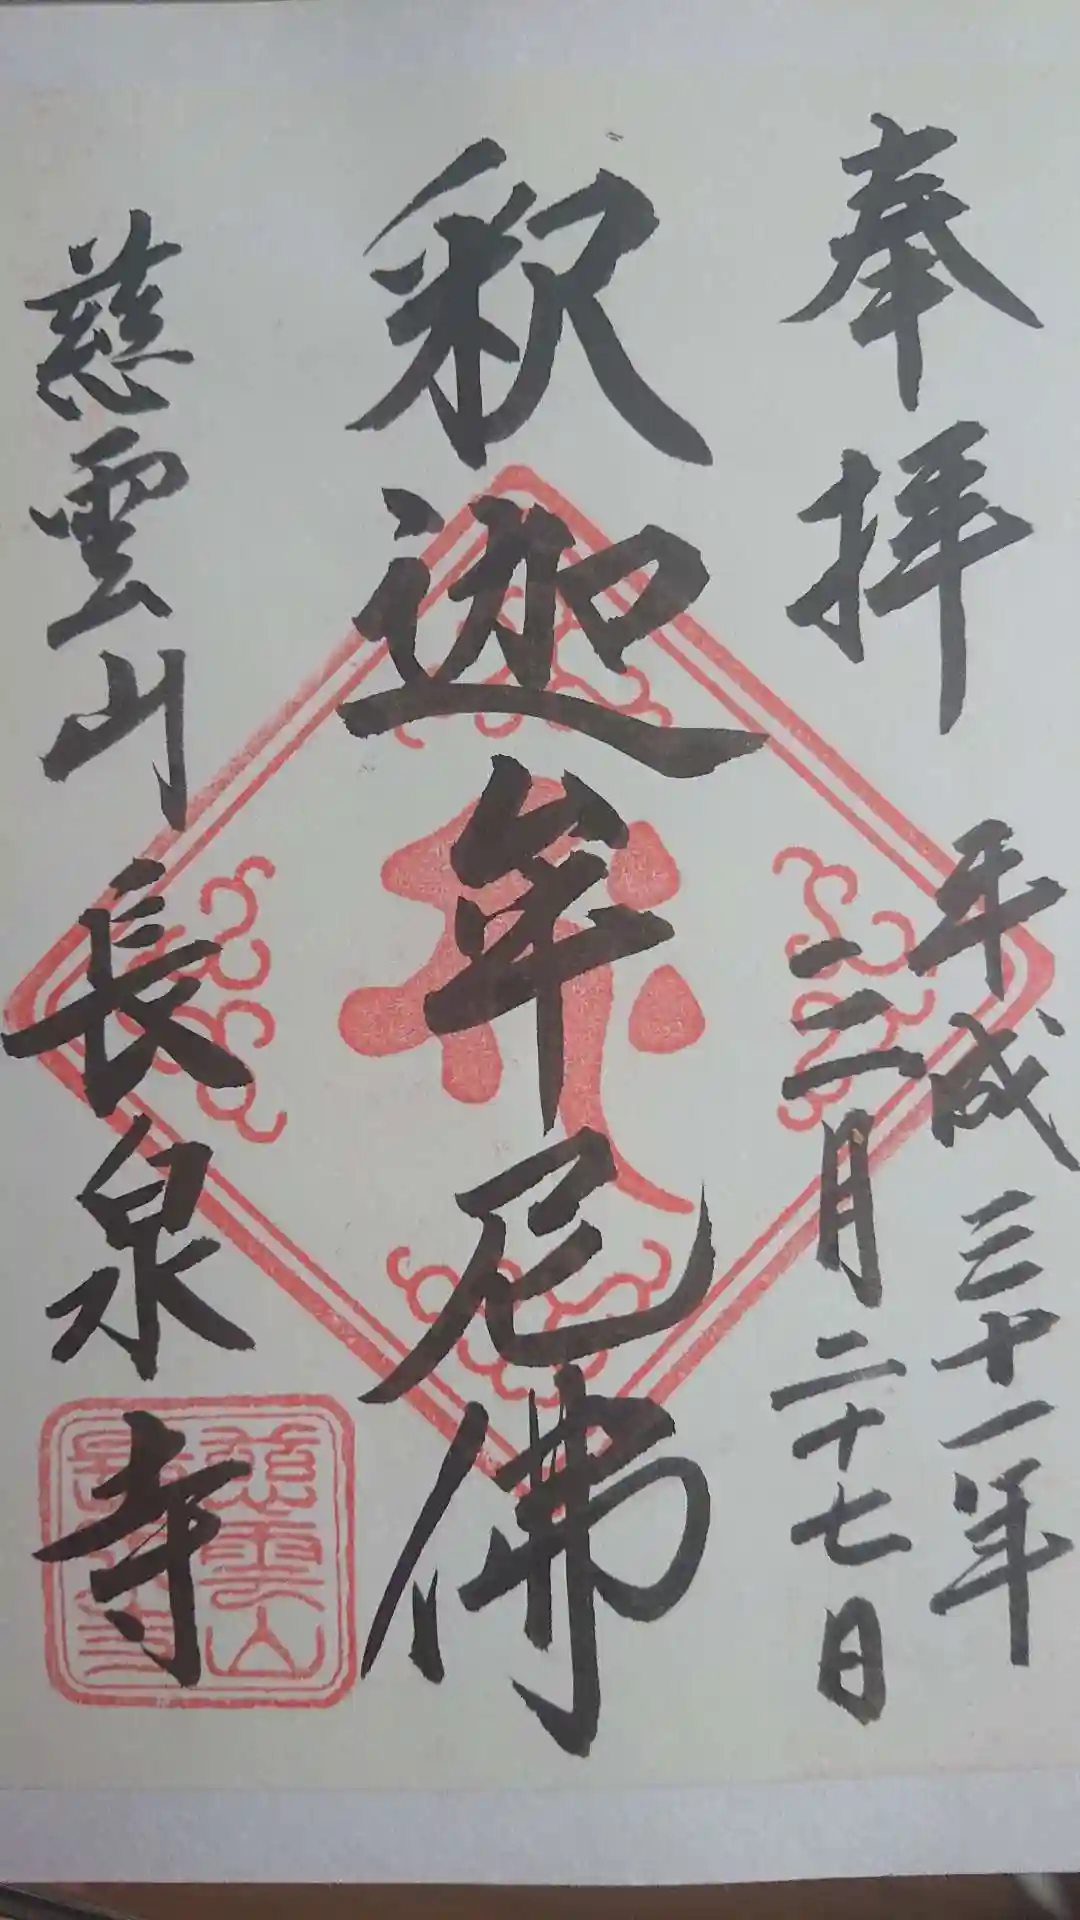 奉拝
平成三十一年
三月二十七日
釈迦牟尼佛
慈雲山長泉寺
慈雲山
長泉寺